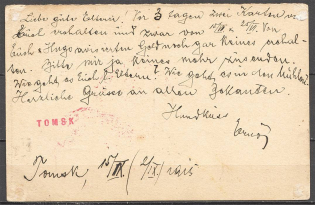 Liebe gute Eltern! Vor 3 tagen zwei Karten von
Euch erhalten und zwar vom 15/VII u 25/VII. Von
Euch & Hugo ausserten Geld noch gar keines erhal-
ten. Bitte mir ja keines mehr zusenden.
Wie geht es Euch l. Eltern? Wie geht es in den
Herzliche Grüsse an allen Bekannten.
Handkuss
Ernő
TOMSK
Tomsk, 15/IX (2/IX) 1915